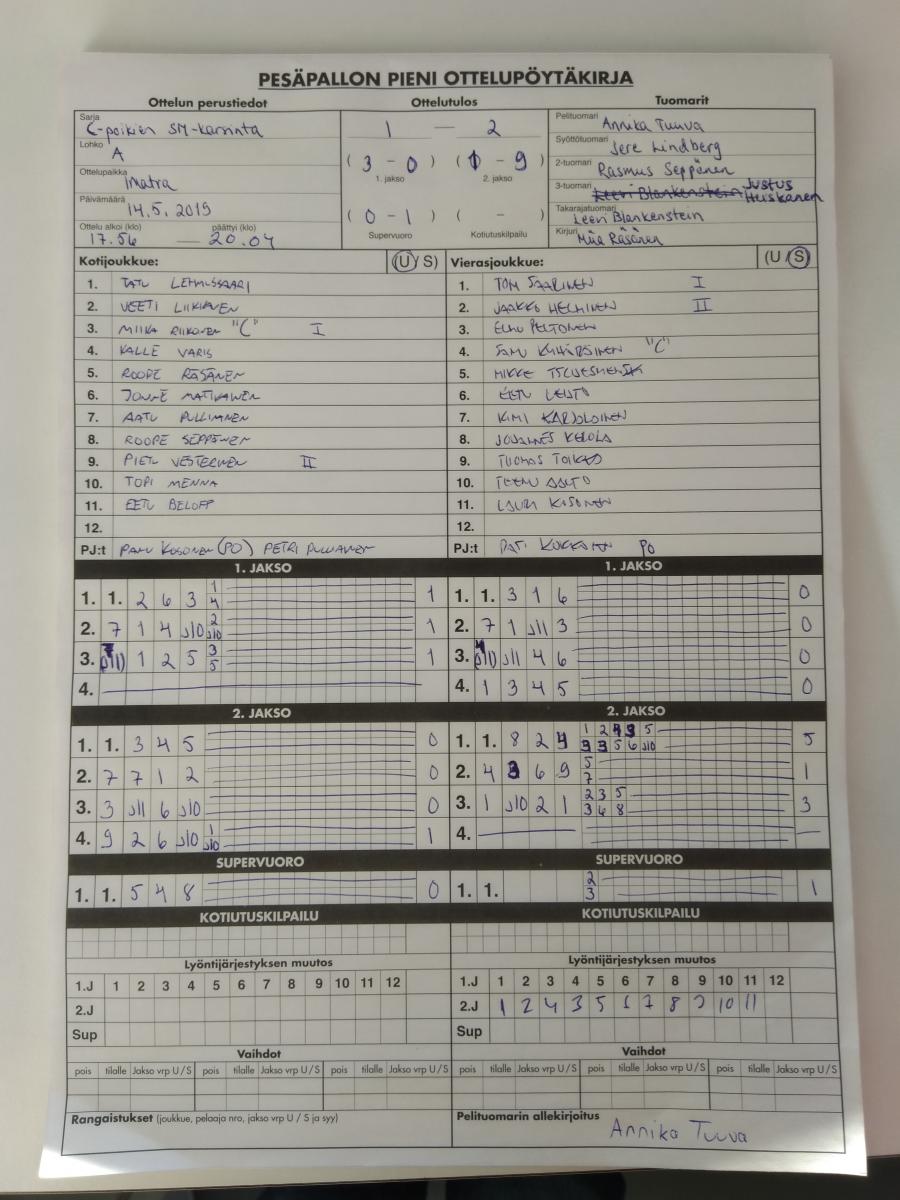 PESÄPALLON PIENI OTTELUPÖYTÄKIRJA
Ottelun perustiedot Ottelutulos Tuomarit
Sarja C-poikien SM-karsinta
Lohko A
Ottelupaikka Imatra
Päivämäärä 14.5.2019
Ottelu alkoi (klo) päättyi (klo)
17.56 — 20.04
1 — 2
( 3 - 0 ) ( 1 - 9 )
1. jakso 2. jakso
( 0 - 1 ) ( - )
Supervuoro Kotiutuskilpailu
Pelituomari Annika Tuuva
Syöttötuomari Jere Lindberg
2-tuomari Rasmus Seppänen
3-tuomari Leevi Blankenstein Justus Huiskanen
Takarajatuomari Leevi Blankenstein
Kirjuri Miia Räsänen
Kotijoukkue: (U / S)
1. TATU LEHMUSSAARI
2. VEETI LIIKANEN
3. MIIKA RIIKONEN "C" I
4. KALLE VARIS
5. ROOPE RÄSÄNEN
6. JONNE MATIKAINEN
7. AATU PULLIAINEN
8. ROOPE SEPPÄNEN
9. PIETU VESTERINEN II
10. TOPI MENNA
11. EETU BELOFF
12.
PJ:t PANU KOSONEN (PO) PETRI PULLIAINEN
Vierasjoukkue: (U / S)
1. TOM SAARINEN I
2. JAAKKO HELMINEN II
3. ELMO PELTONEN
4. SAMU "C"
5. MIKKE
6. EETU LEISTO
7. KIMI KARJALAINEN
8. JOHANNES KEROLA
9. TUOMAS TOIKKA
10. TEEMU AALTO
11. LAURI KOSONEN
12.
PJ:t PATI KOKKONEN PO
1. JAKSO
1. 1. 2 6 3 1 4 1
2. 7 1 4 J10 2 J10 1
3. 1 2 5 3 5 1
4.
1. JAKSO
1. 1. 3 1 6 0
2. 7 1 J11 3 0
3. J11 4 6 0
4. 1 3 4 5 0
2. JAKSO
1. 1. 3 4 5 0
2. 7 7 1 2 0
3. 3 J11 6 J10 0
4. 9 2 6 J10 1 J10 1
2. JAKSO
1. 1. 8 2 4 1 2 4 3 5 5
3 3 5 6 J10
2. 4 3 6 9 5 7 1
3. 1 J10 2 1 2 3 5 3
3 6 8
4. —
SUPERVUORO
1. 1. 5 4 8 0
SUPERVUORO
1. 1. 2 3 1
KOTIUTUSKILPAILU
KOTIUTUSKILPAILU
Lyöntijärjestyksen muutos
1.J 1 2 3 4 5 6 7 8 9 10 11 12
2.J
Sup
Lyöntijärjestyksen muutos
1.J 1 2 3 4 5 6 7 8 9 10 11 12
2.J 1 2 4 3 5 6 7 8 9 10 11
Sup
Vaihdot
pois tilalle Jakso vrp U/S pois tilalle Jakso vrp U/S pois tilalle Jakso vrp U/S
Vaihdot
pois tilalle Jakso vrp U/S pois tilalle Jakso vrp U/S pois tilalle Jakso vrp U/S
Rangaistukset (joukkue, pelaaja nro, jakso vrp U / S ja syy)
Pelituomarin allekirjoitus
Annika Tuuva